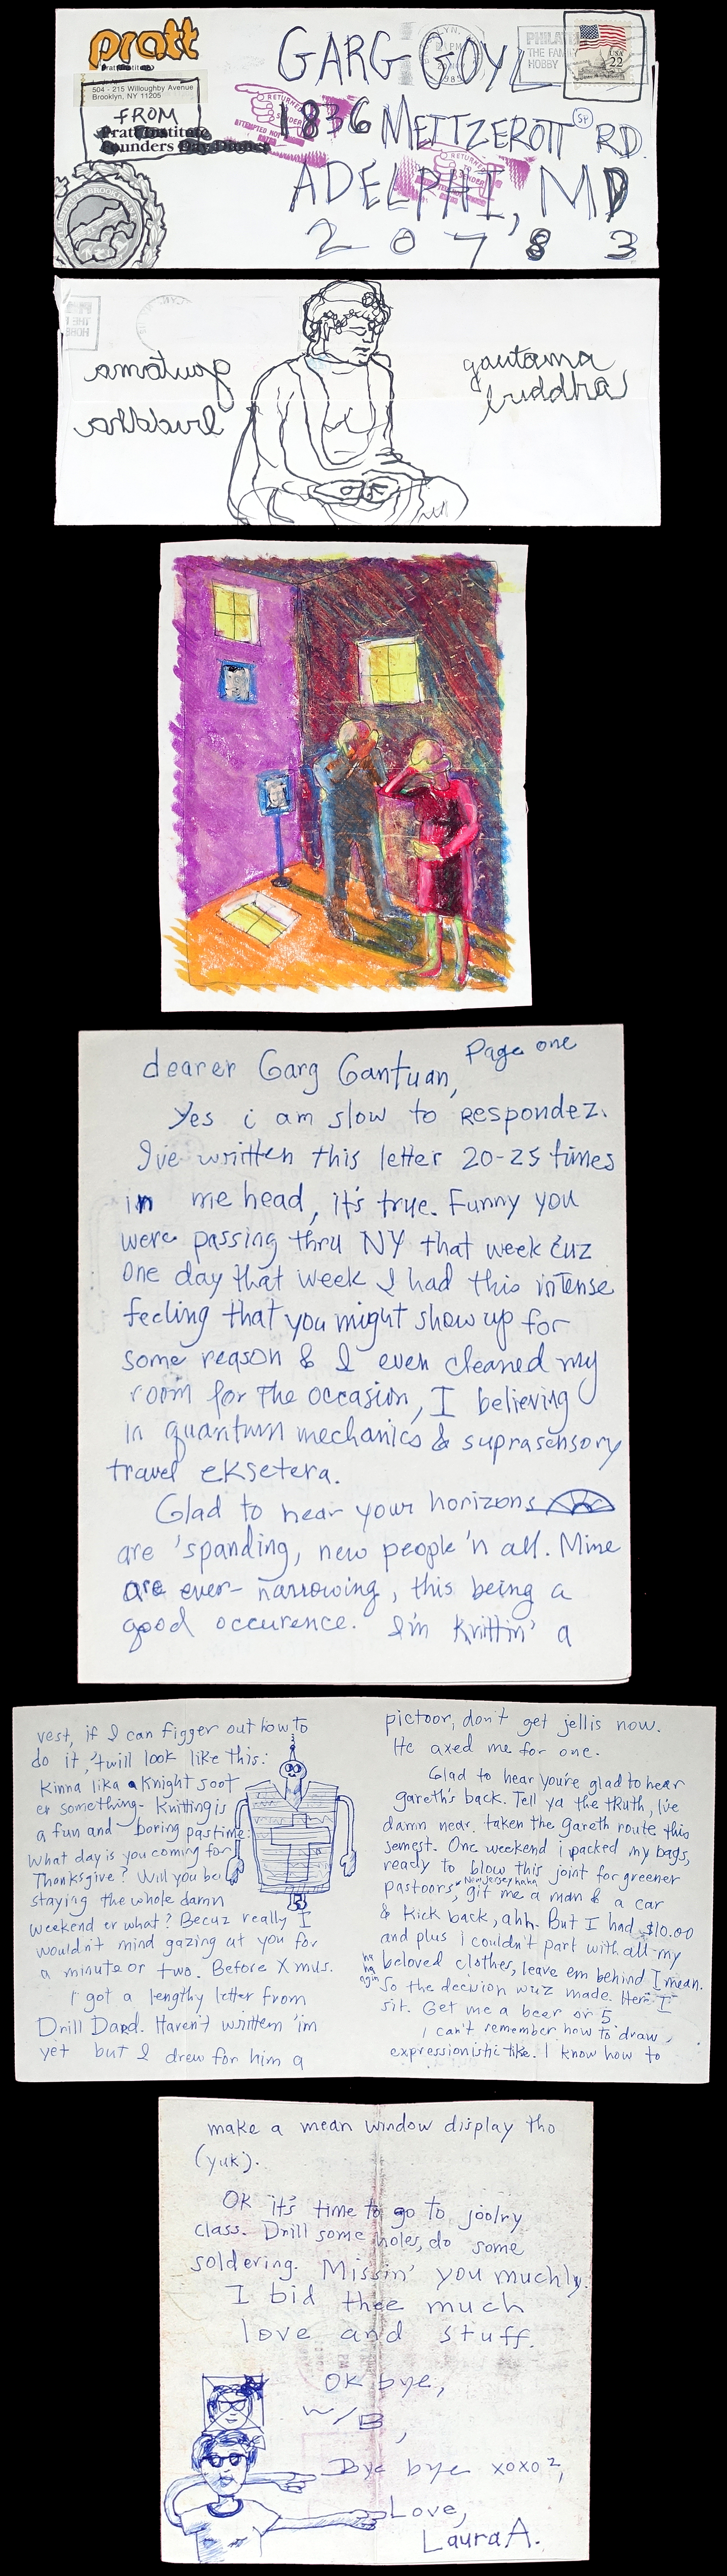 pratt
Pratt Institute
504 - 215 Willoughby Avenue
Brooklyn, NY 11205
FROM
Pratt Institute
Founders Day Dinner
GARG GOYL
1836 METTZEROTT RD.
SP
ADELPHI, MD
2 0 7 8 3
1985
PHILAT
THE FAMI
HOBBY
USA
22
RETURNED
TO
SENDER
ATTEMPTED NOT
RETURNED
TO
SENDER
gautama
buddha
gautama
buddha
Page one
dearer Garg Gantuan,
Yes i am slow to respondez.
I've written this letter 20-25 times
in me head, it's true. Funny you
were passing thru NY that week cuz
one day that week I had this intense
feeling that you might show up for
some reason & I even cleaned my
room for the occasion, I believing
in quantum mechanics & suprasensory
travel eksetera.
Glad to hear your horizons
are 'spanding, new people 'n all. Mine
are ever-narrowing, this being a
good occurence. I'm knittin' a
vest, if I can figger out how to
do it, 'twill look like this:
Kinna lika a Knight soot
er something- Knitting is
a fun and boring pastime.
What day is you coming for
Thanksgive? Will you be
staying the whole damn
weekend er what? Becuz really I
wouldn't mind gazing at you for
a minute or two. Before X mus.
I got a lengthy letter from
Drill Dard. Haven't written 'im
yet but I drew for him a
pictoor, don't get jellis now.
He axed me for one.
Glad to hear you're glad to hear
gareth's back. Tell ya the truth, I've
damn near taken the gareth route this
semest. One weekend i packed my bags,
ready to blow this joint for greener
pastoors, New Jersey haha git me a man & a car
& kick back, ahh. But I had $10.00
and plus i couldn't part with all my
beloved clothes, leave em behind I mean.
ha ha agin
So the decision wuz made. Here I
sit. Get me a beer or 5.
I can't remember how to draw,
expressionistic-like. I know how to
make a mean window display tho
(yuk).
OK it's time to go to joolry
class. Drill some holes, do some
soldering. Missin' you muchly.
I bid thee much
love and stuff.
OK bye,
W/B,
Bye bye xoxo²,
Love,
Laura A.